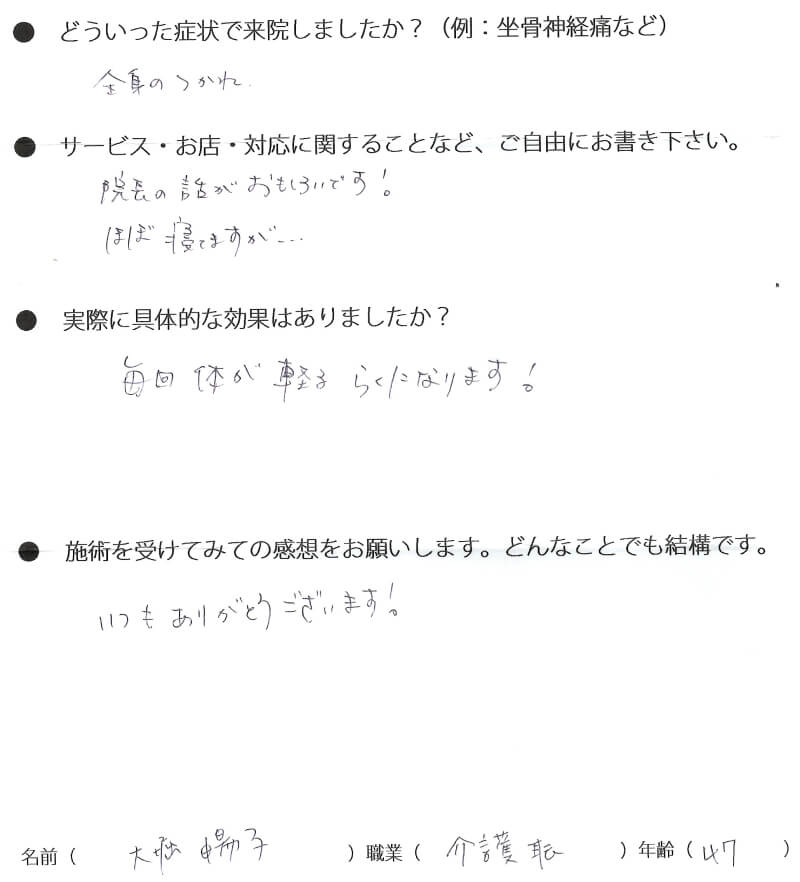 ● どういった症状で来院しましたか？（例：坐骨神経痛など）
全身のつかれ.
● サービス・お店・対応に関することなど、ご自由にお書き下さい。
院長の話がおもしろいです！
ほぼ寝てますが…
● 実際に具体的な効果はありましたか？
毎回 体が 軽る らくになります！
● 施術を受けてみての感想をお願いします。どんなことでも結構です。
いつもありがとうございます！
名前（ 大堀 陽子 ）職業（ 介護職 ）年齢（ 47 ）